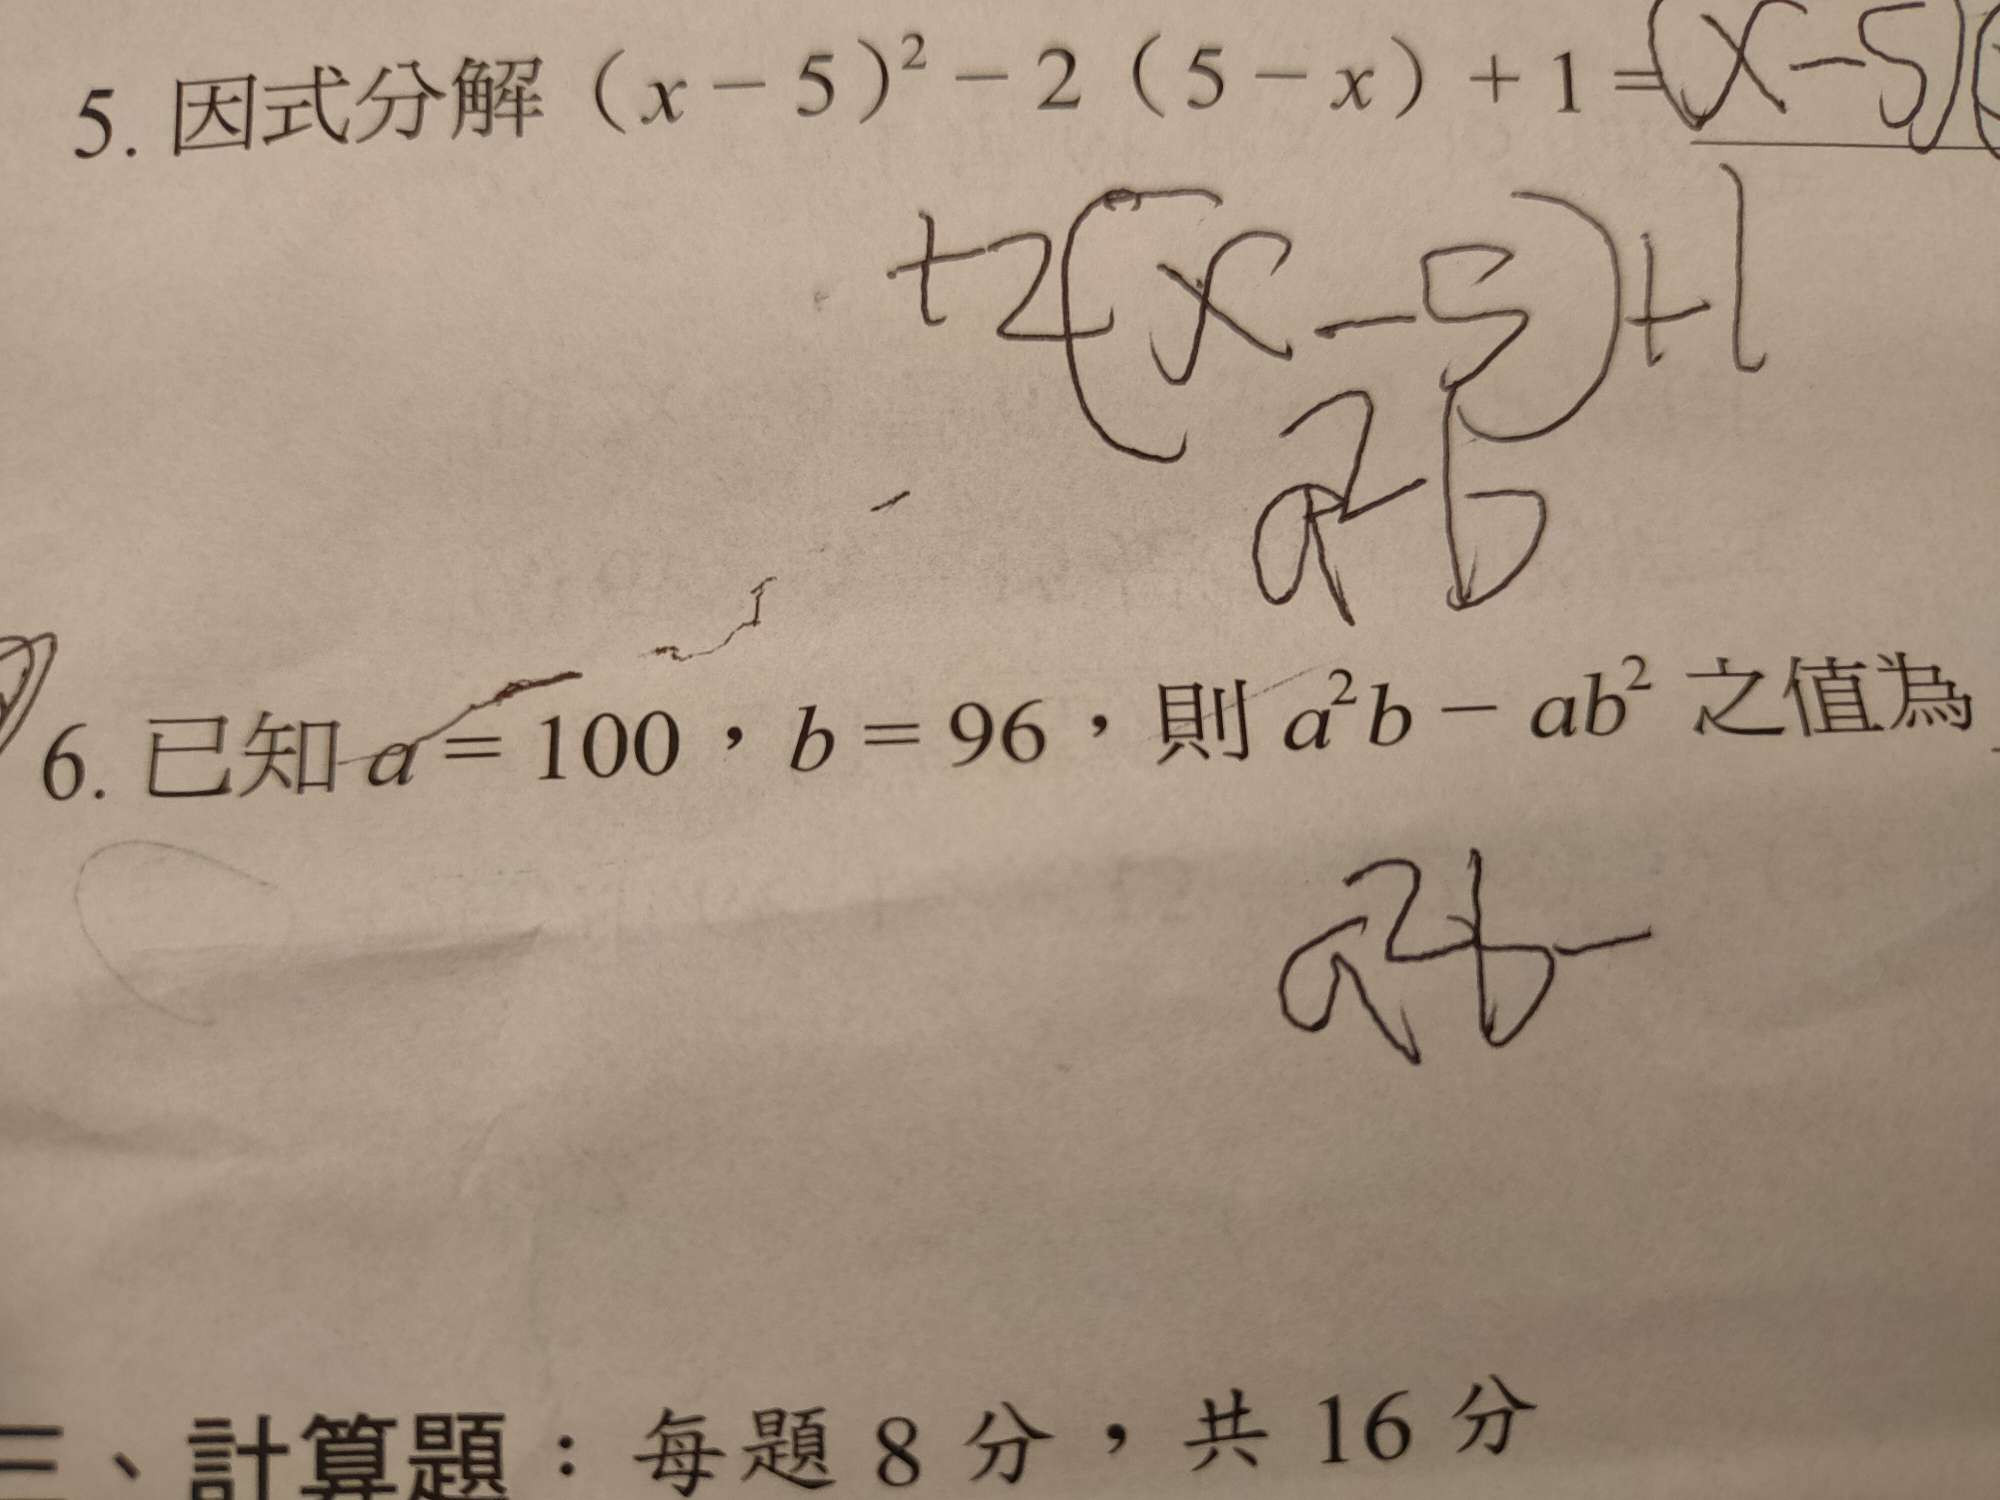 5. 因式分解（x－5）²－2（5－x）＋1＝(x-5)(
+2(x-5)+1
a²b
6. 已知 a＝100，b＝96，則 a²b－ab² 之值為
a²b-
三、計算題：每題 8 分，共 16 分